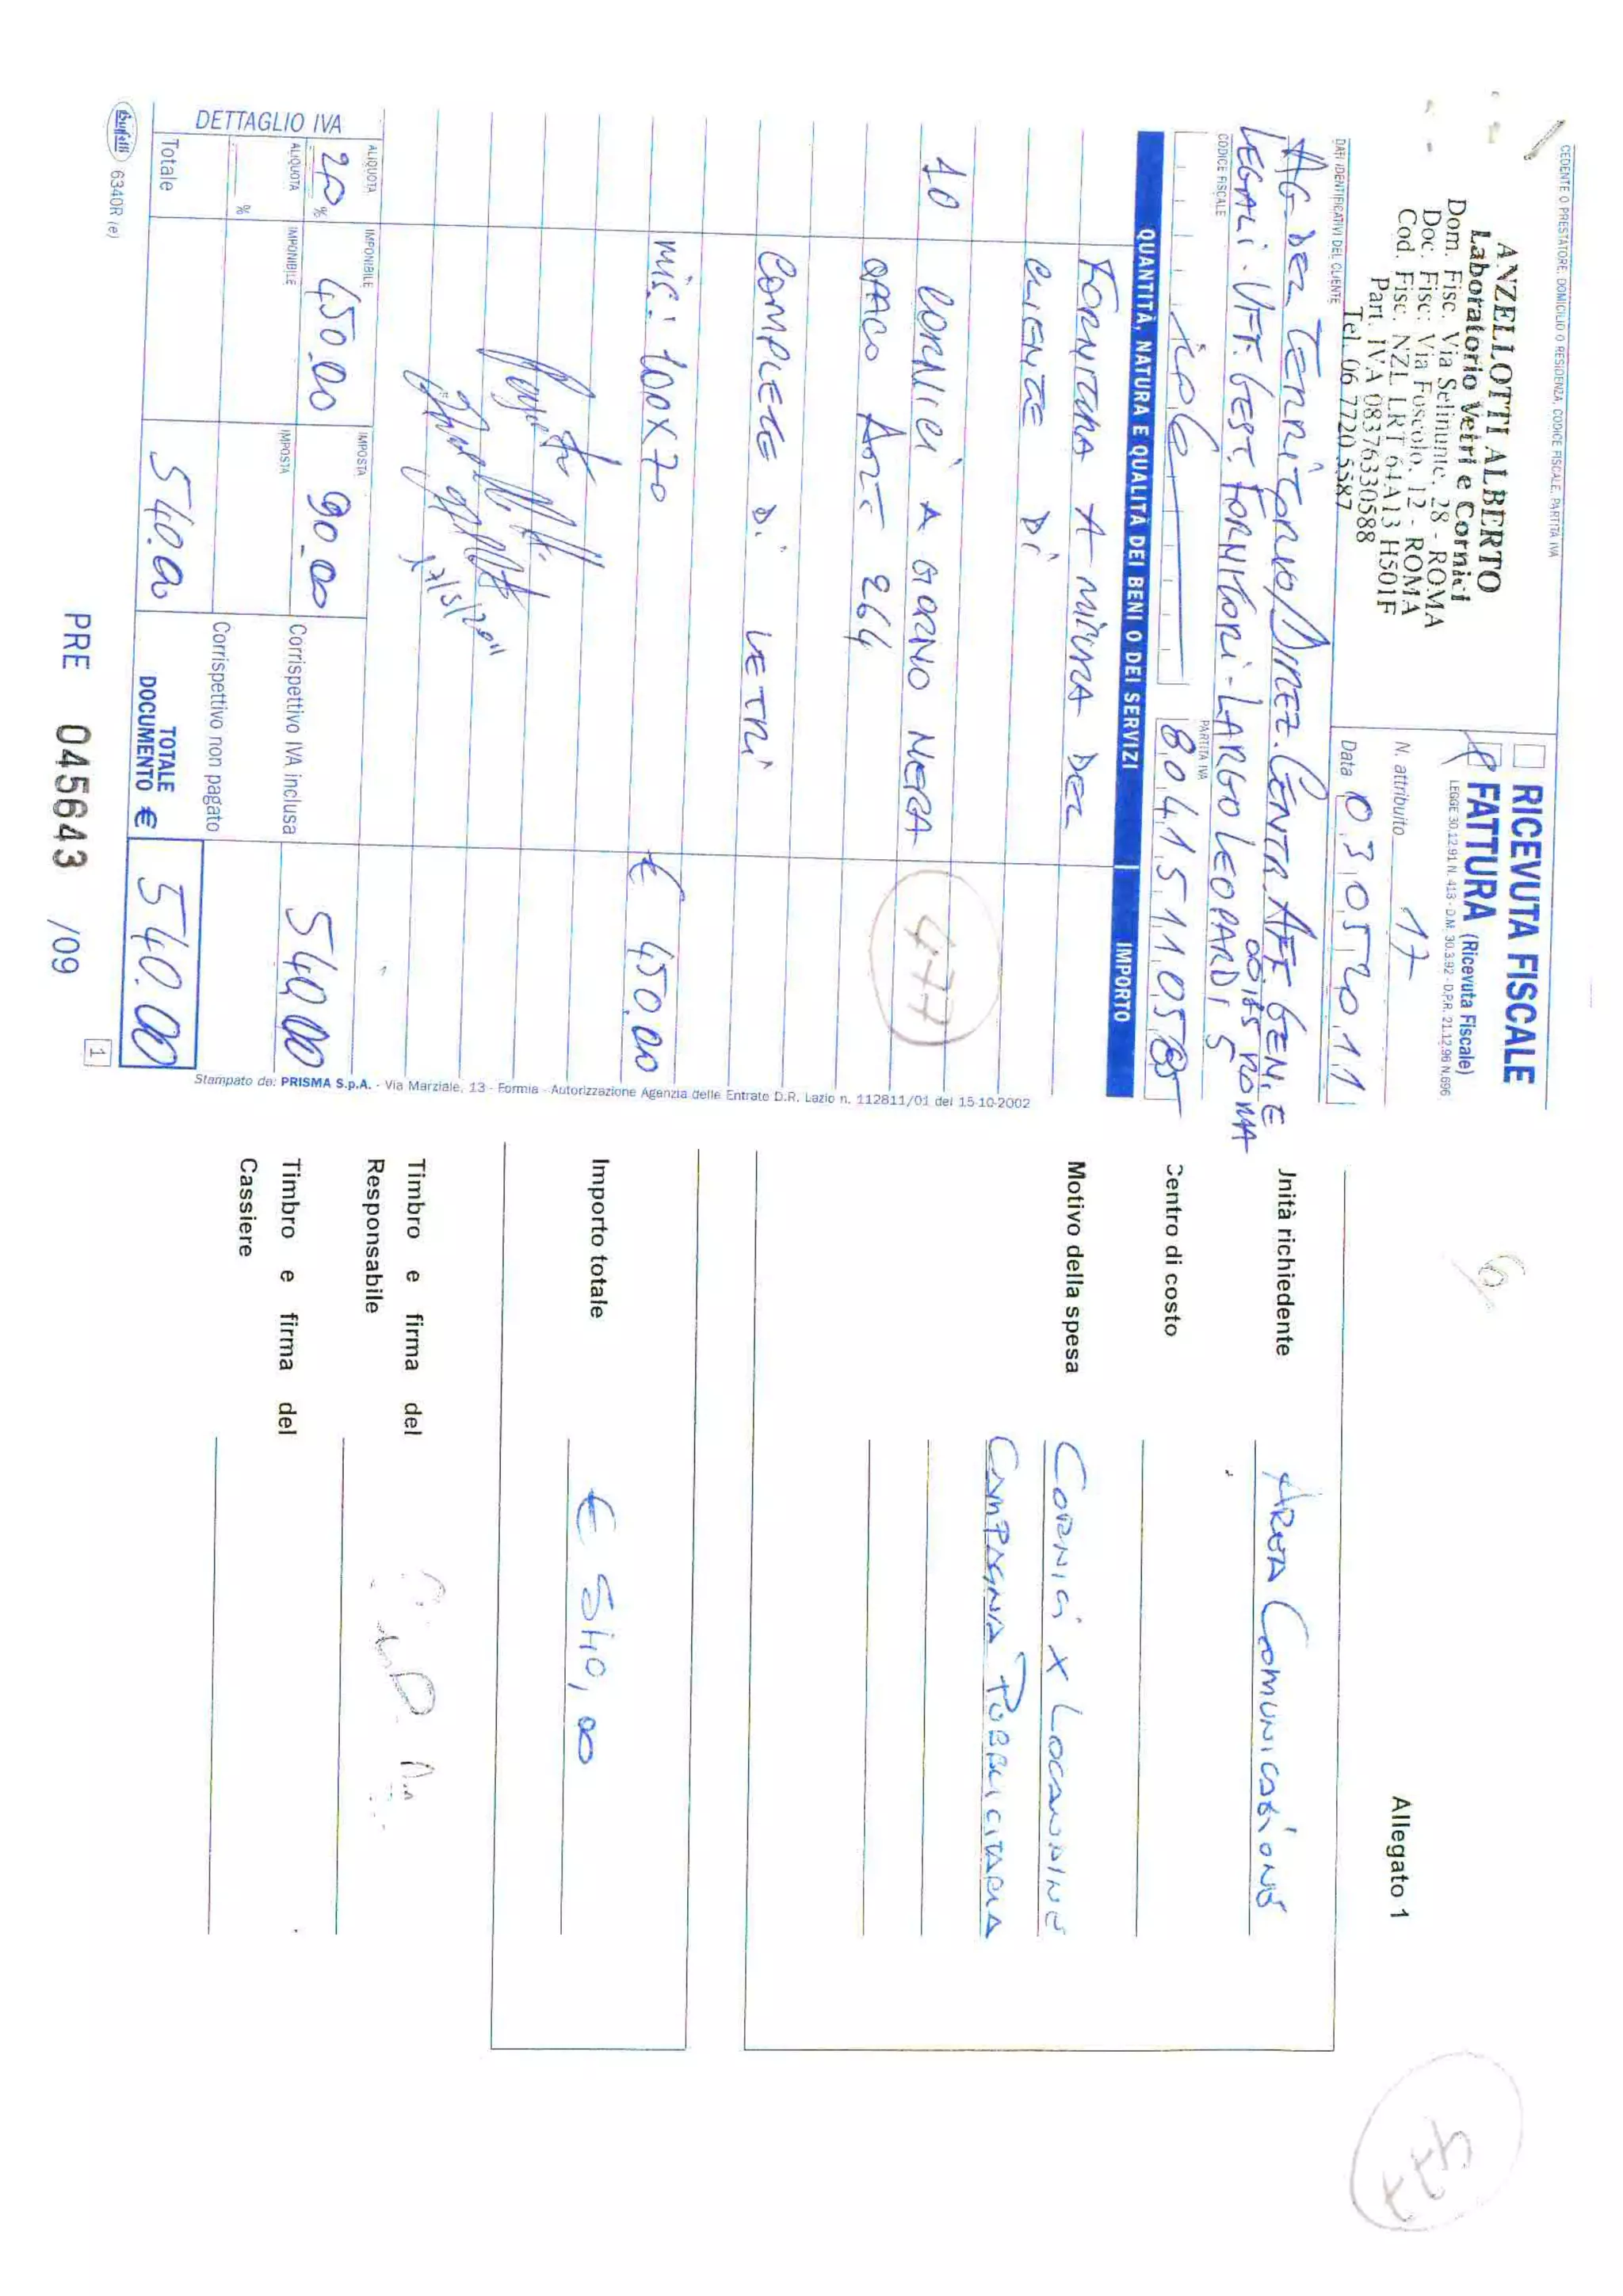 CEDENTE O PRESTATORE, DOMICILIO O RESIDENZA, CODICE FISCALE, PARTITA IVA
ANZELLOTTI ALBERTO
Laboratorio Vetri e Cornici
Dom. Fisc. Via Selinunte, 28 - ROMA
Doc. Fisc: Via Foscolo, 12 - ROMA
Cod. Fisc. NZL LRT 64A13 H501F
Part. IVA 08376330588
Tel. 06 7720 5587
RICEVUTA FISCALE
FATTURA (Ricevuta Fiscale)
LEGGE 30.12.91 N. 413 - D.M. 30.3.92 - D.P.R. 21.12.96 N.696
N. attribuito 17
Data 03052011
DATI IDENTIFICATIVI DEL CLIENTE
AG. DEL TERRITORIO/DIREZ. CENTR. AFF GEN. E
LEGALI. UFF. GEST FORNITORI - LARGO LEOPARDI 5
00185 ROMA
CODICE FISCALE
PARTITA IVA
80415110585
QUANTITÀ, NATURA E QUALITÀ DEI BENI O DEI SERVIZI
IMPORTO
FORNITURA A MISURA DEL
CLIENTE DI
10 CORNICI A GIORNO NERA
OPACO ART= 264
477
COMPLETE DI VETRI
MIS: 100X70 € 450.00
17/5/2011
DETTAGLIO IVA
ALIQUOTA 20 % IMPONIBILE 450.00 IMPOSTA 90.00
Corrispettivo IVA inclusa 540 00
ALIQUOTA % IMPONIBILE IMPOSTA
Corrispettivo non pagato
Totale 540.00
TOTALE DOCUMENTO € 540.00
Buffetti 6340R (e)
PRE 045643 /09
1
Stampato da: PRISMA S.p.A. - Via Marziale, 13 - Formia - Autorizzazione Agenzia delle Entrate D.R. Lazio n. 112811/01 del 15-10-2002
6
Allegato 1
477
Unità richiedente AREA COMUNICAZIONE
Centro di costo
Motivo della spesa CORNICI X LOCANDINE
CAMPAGNA PUBBLICITARIA
Importo totale € 540,00
Timbro e firma del
Responsabile
Timbro e firma del
Cassiere